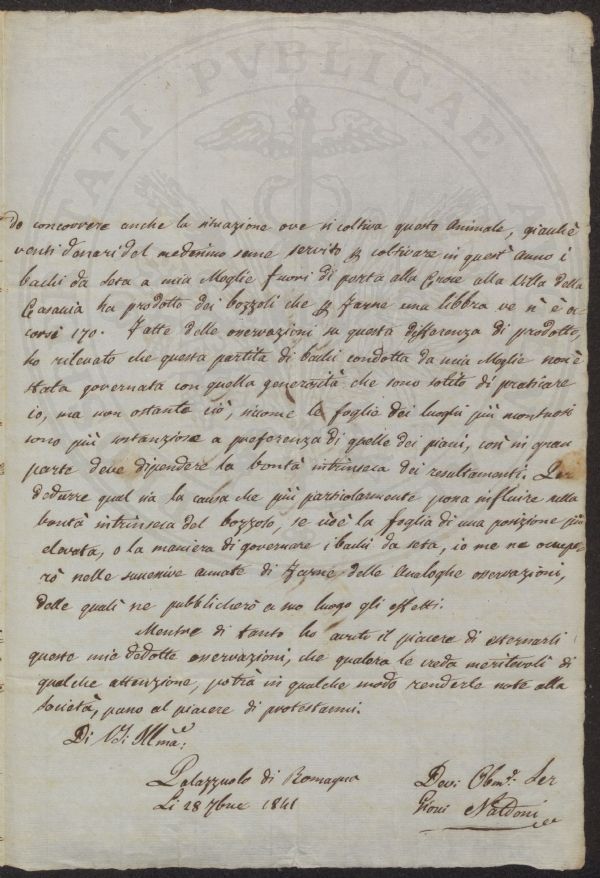 TATI PVBLICAE
do concorrere anche la situazione ove si coltiva questo Animale, giacchè
venti danari del medesimo seme servito p coltivare in quest'anno i
bachi da seta a mia Moglie fuori di porta alla Croce alla Villa della
ha prodotto dei bozzoli che p farne una libbra ve n'è oc
corsi 170. Fatte delle osservazioni su questa differenza di prodotto,
ho rilevato che questa partita di bachi condotta da mia Moglie non è
stata governata con quella generalità che sono solito di praticare
io, ma non ostante ciò, siccome le foglie dei luoghi più montuosi
sono più sostanziose a preferenza di quelle dei piani, così in gran
parte deve dipendere la bontà intrinseca dei resultamenti. Per
dedurre qual sia la causa che più particolarmente possa influire nella
bontà intrinseca del bozzolo, se cioè la foglia di una posizione più
elevata, o la maniera di governare i bachi da seta, io me ne occupe-
rò nelle successive annate di farne delle Analoghe osservazioni,
delle quali ne pubblicherò a suo luogo gli effetti.
Mentre di tanto ho avuto il piacere di esternarli
queste mie dedotte osservazioni, che qualora le creda meritevoli di
qualche attenzione, potrà in qualche modo renderle note alla
Società, passo al piacere di protestarmi.
Di VS: Illma:
Palazzuolo di Romagna
Li 28 7bre 1841
Dev: Obmo: Ser
Naldoni